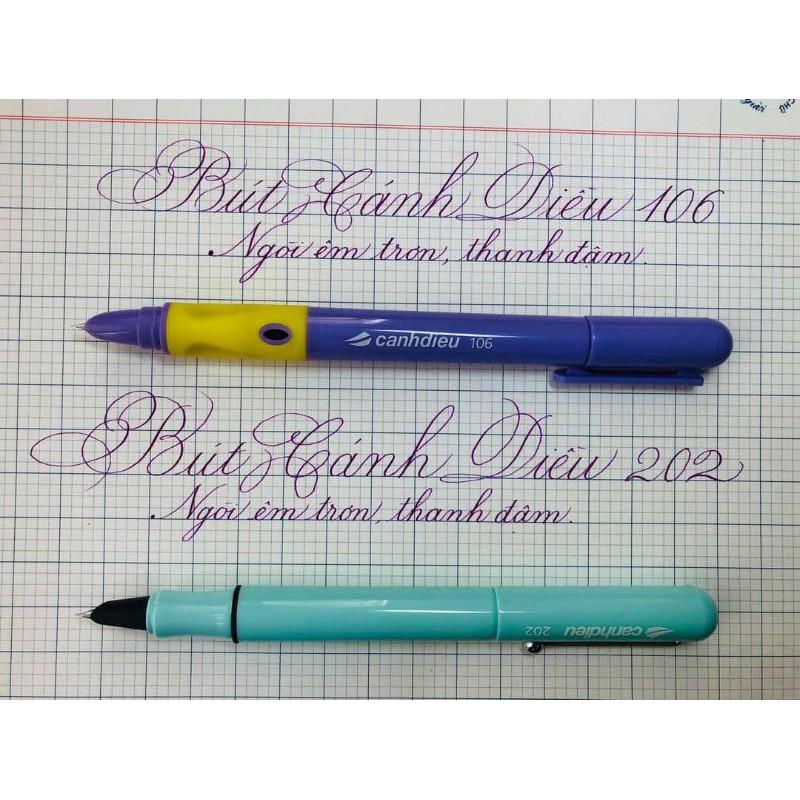 Bút Cánh Diều 106
Ngòi êm trơn, thanh đậm.
canhdieu 106
Bút Cánh Diều 202
Ngòi êm trơn, thanh đậm.
canhdieu 202